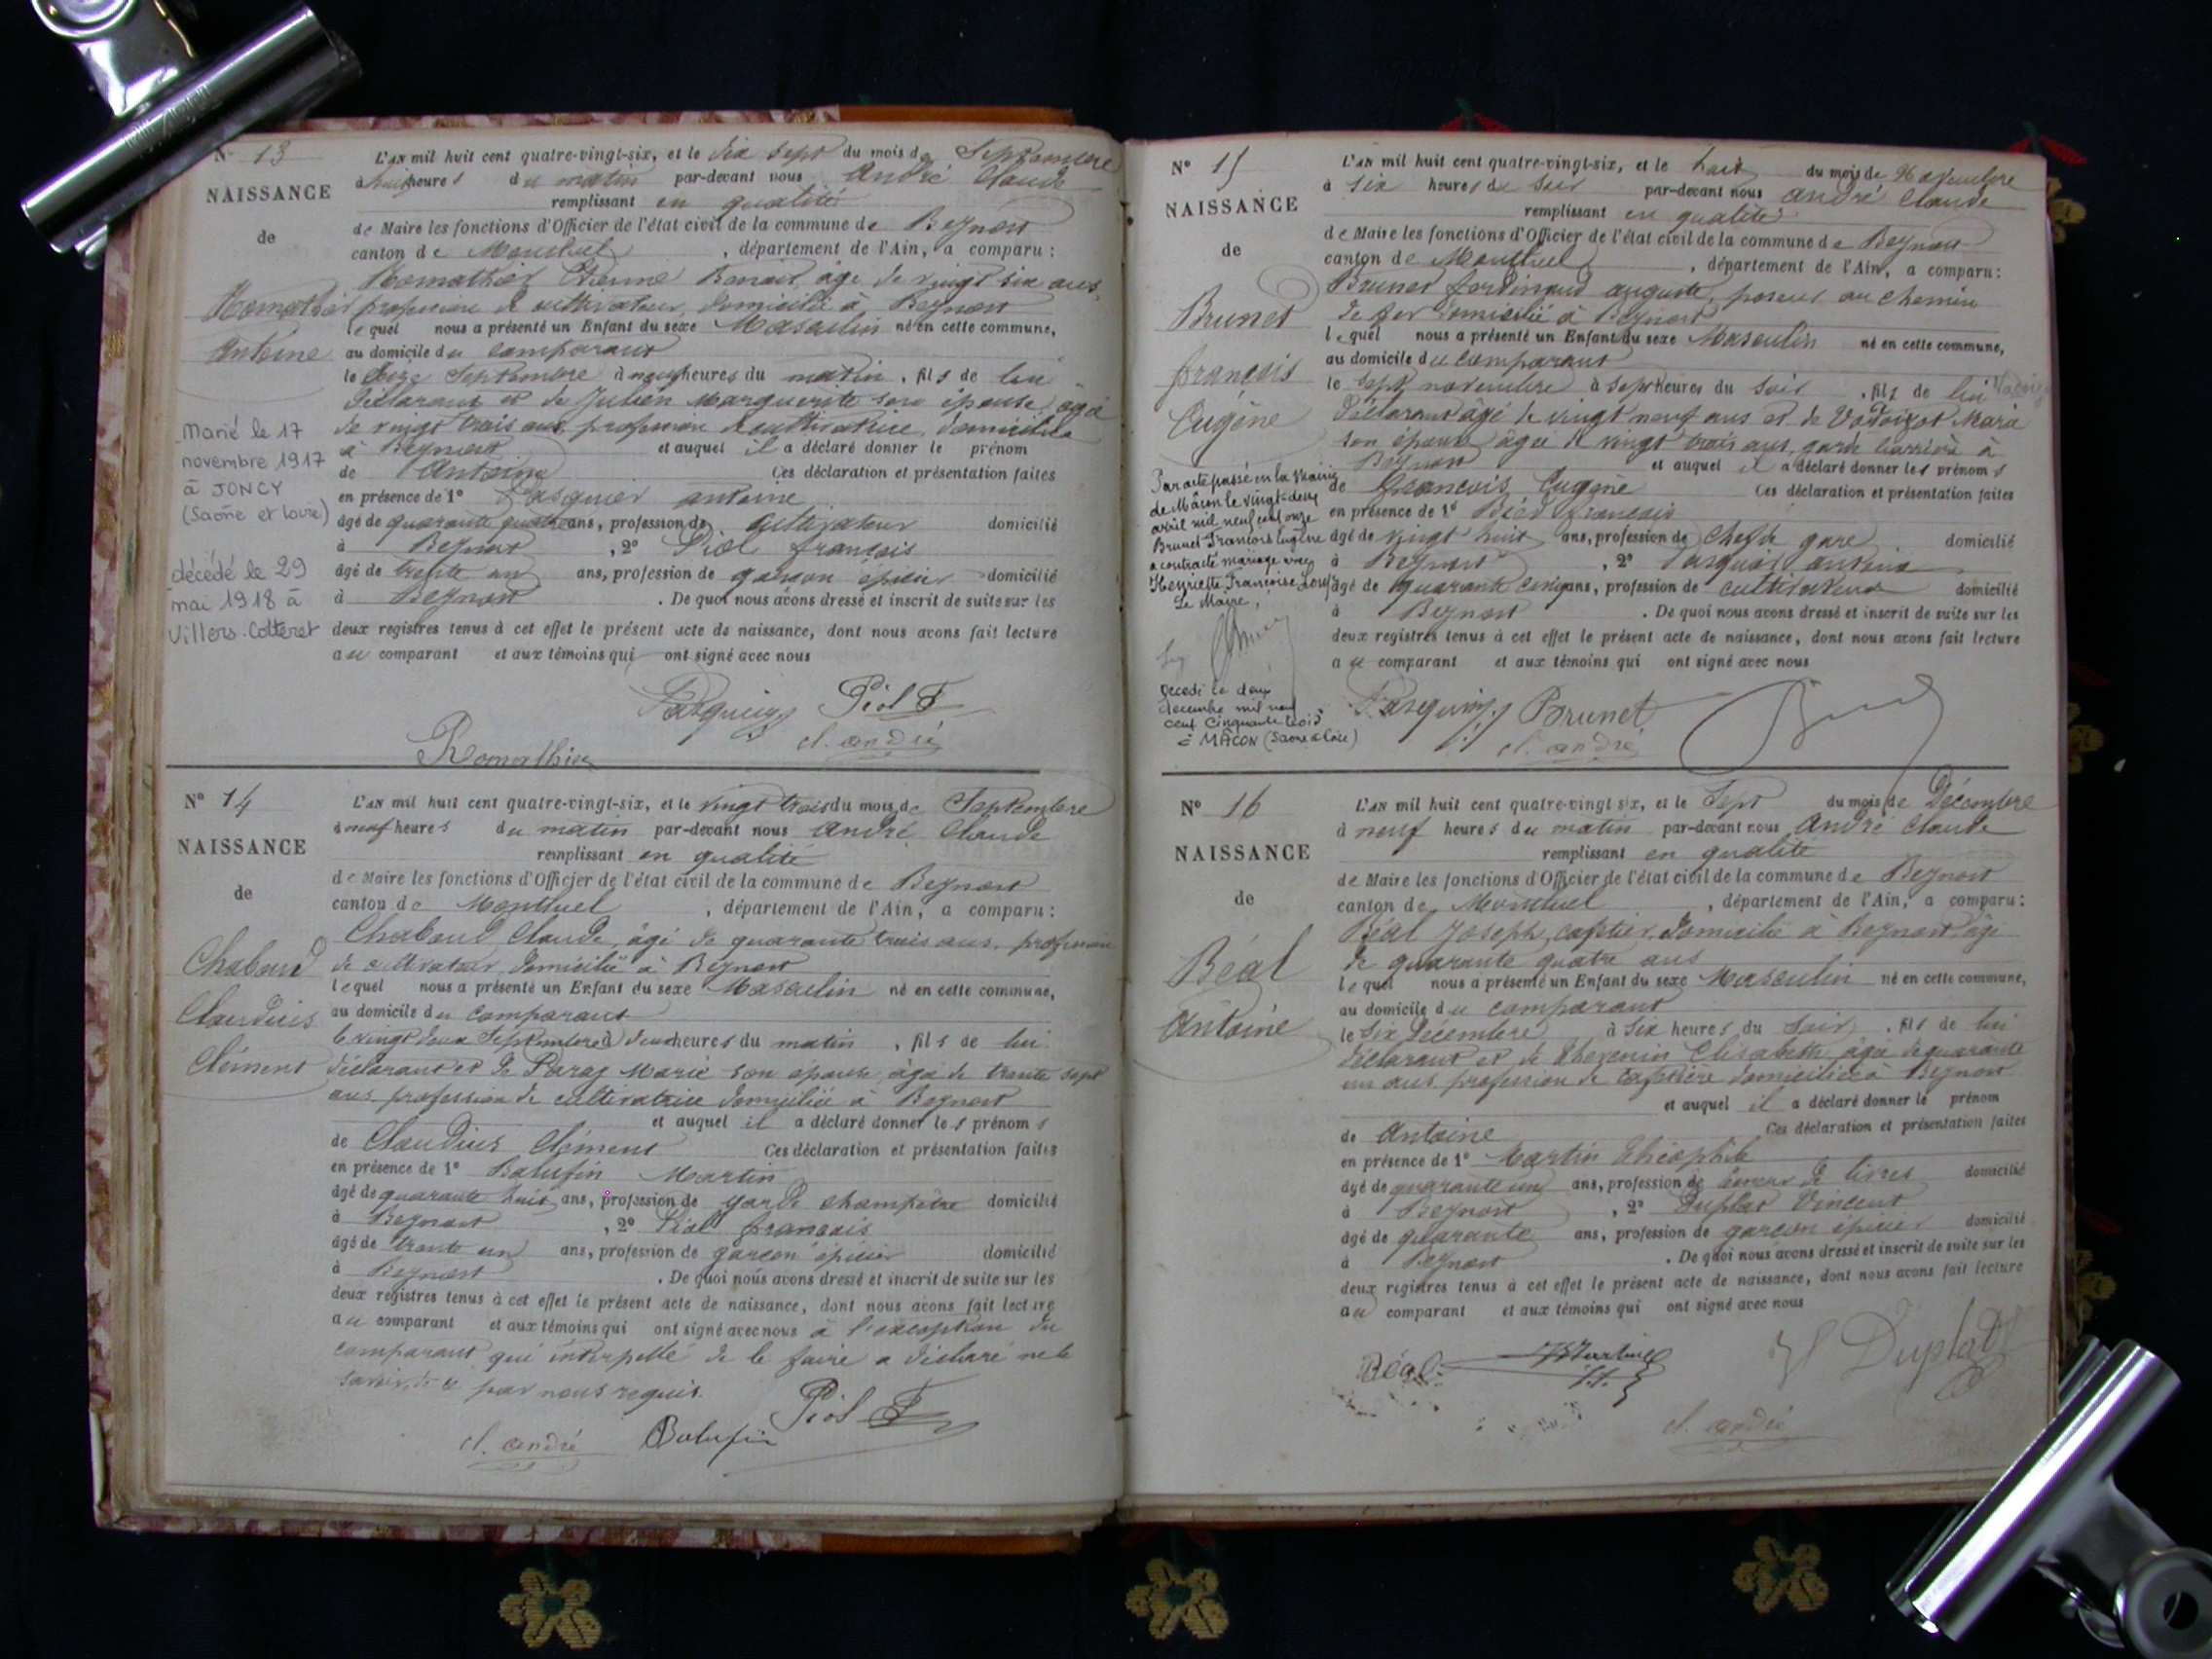 N° 13
NAISSANCE
de
Romathier
Antoine
Marié le 17
novembre 1917
à JONCY
(Saône et Loire)
décédé le 29
mai 1918 à
Villers-Cotteret
L'AN mil huit cent quatre-vingt-six, et le dix sept du mois de Septembre
à huit heures du matin par-devant nous André Claude
remplissant en qualité
de Maire les fonctions d'Officier de l'état civil de la commune de Beynost
canton de Montluel, département de l'Ain, a comparu :
Romathier Etienne Benoit, âgé de vingt six ans,
profession de cultivateur, domicilié à Beynost
lequel nous a présenté un Enfant du sexe Masculin né en cette commune,
au domicile du comparant
le Seize Septembre à neuf heures du matin, fils de lui
déclarant et de Julien Marguerite son épouse âgée
de vingt trois ans, profession de cultivatrice, domiciliée
à Beynost et auquel il a déclaré donner le prénom
de Antoine Ces déclaration et présentation faites
en présence de 1° Pasquier antoine
âgé de quarante quatre ans, profession de cultivateur domicilié
à Beynost, 2° Piol françois
âgé de trente un ans, profession de garçon épicier domicilié
à Beynost. De quoi nous avons dressé et inscrit de suite sur les
deux registres tenus à cet effet le présent acte de naissance, dont nous avons fait lecture
au comparant et aux témoins qui ont signé avec nous
Pasquier Piol F
cl. andré
Romathier
N° 14
NAISSANCE
de
Chabaud
Claudius
Clément
L'AN mil huit cent quatre-vingt-six, et le vingt trois du mois de Septembre
à neuf heures du matin par-devant nous André Claude
remplissant en qualité
de Maire les fonctions d'Officier de l'état civil de la commune de Beynost
canton de Montluel, département de l'Ain, a comparu :
Chabaud Claude, âgé de quarante trois ans, profession
de cultivateur, domicilié à Beynost
lequel nous a présenté un Enfant du sexe Masculin né en cette commune,
au domicile du comparant
le vingt deux Septembre à deux heures du matin, fils de lui
déclarant et de Marie son épouse, âgée de trente sept
ans, profession de cultivatrice domiciliée à Beynost
et auquel il a déclaré donner les prénoms
de Claudius Clément Ces déclaration et présentation faites
en présence de 1° Balufin Martin
âgé de quarante huit ans, profession de garde champêtre domicilié
à Beynost, 2° Piol françois
âgé de trente un ans, profession de garçon épicier domicilié
à Beynost. De quoi nous avons dressé et inscrit de suite sur les
deux registres tenus à cet effet le présent acte de naissance, dont nous avons fait lecture
au comparant et aux témoins qui ont signé avec nous à l'exception du
comparant qui interpellé de le faire a déclaré ne le
savoir, de ce par nous requis.
Piol F
cl. andré Balufin
N° 15
NAISSANCE
de
Brunet
françois
Eugène
Par acte passé en la Mairie
de Mâcon le vingt-deux
avril mil neuf cent onze
Brunet François Eugène
a contracté mariage avec
Henriette Françoise
Le Maire,
Décédé le deux
décembre mil neuf
cent cinquante trois
à MÂCON (Saône & Loire)
L'AN mil huit cent quatre-vingt-six, et le huit du mois de Novembre
à six heures du soir par-devant nous André Claude
remplissant en qualité
de Maire les fonctions d'Officier de l'état civil de la commune de Beynost
canton de Montluel, département de l'Ain, a comparu :
Brunet ferdinand auguste, poseur au chemin
de fer domicilié à Beynost
lequel nous a présenté un Enfant du sexe Masculin né en cette commune,
au domicile du comparant
le sept novembre à sept heures du soir, fils de lui
déclarant âgé de vingt neuf ans et de Marie
son épouse âgée de vingt trois ans, garde barrière à
Beynost et auquel il a déclaré donner les prénoms
de françois Eugène Ces déclaration et présentation faites
en présence de 1° françois
âgé de vingt huit ans, profession de Chef de gare domicilié
à Beynost, 2° Pasquier antoine
âgé de quarante cinq ans, profession de cultivateur domicilié
à Beynost. De quoi nous avons dressé et inscrit de suite sur les
deux registres tenus à cet effet le présent acte de naissance, dont nous avons fait lecture
au comparant et aux témoins qui ont signé avec nous
Pasquier Brunet
cl. andré
N° 16
NAISSANCE
de
Béal
Antoine
L'AN mil huit cent quatre-vingt six, et le Sept du mois de Décembre
à neuf heures du matin par-devant nous André Claude
remplissant en qualité
de Maire les fonctions d'Officier de l'état civil de la commune de Beynost
canton de Montluel, département de l'Ain, a comparu :
Béal Joseph, domicilié à Beynost âgé
de quarante quatre ans
lequel nous a présenté un Enfant du sexe Masculin né en cette commune,
au domicile du comparant
le Six Décembre à six heures du soir, fils de lui
déclarant et de Thevenin Elisabeth, âgée de quarante
un ans, profession de domiciliée à Beynost
et auquel il a déclaré donner le prénom
de Antoine Ces déclaration et présentation faites
en présence de 1° Martin Théophile
âgé de quarante un ans, profession de de livres domicilié
à Beynost, 2° Duplat Vincent
âgé de quarante ans, profession de garçon épicier domicilié
à Beynost. De quoi nous avons dressé et inscrit de suite sur les
deux registres tenus à cet effet le présent acte de naissance, dont nous avons fait lecture
au comparant et aux témoins qui ont signé avec nous
Béal Martin Duplat
cl. andré